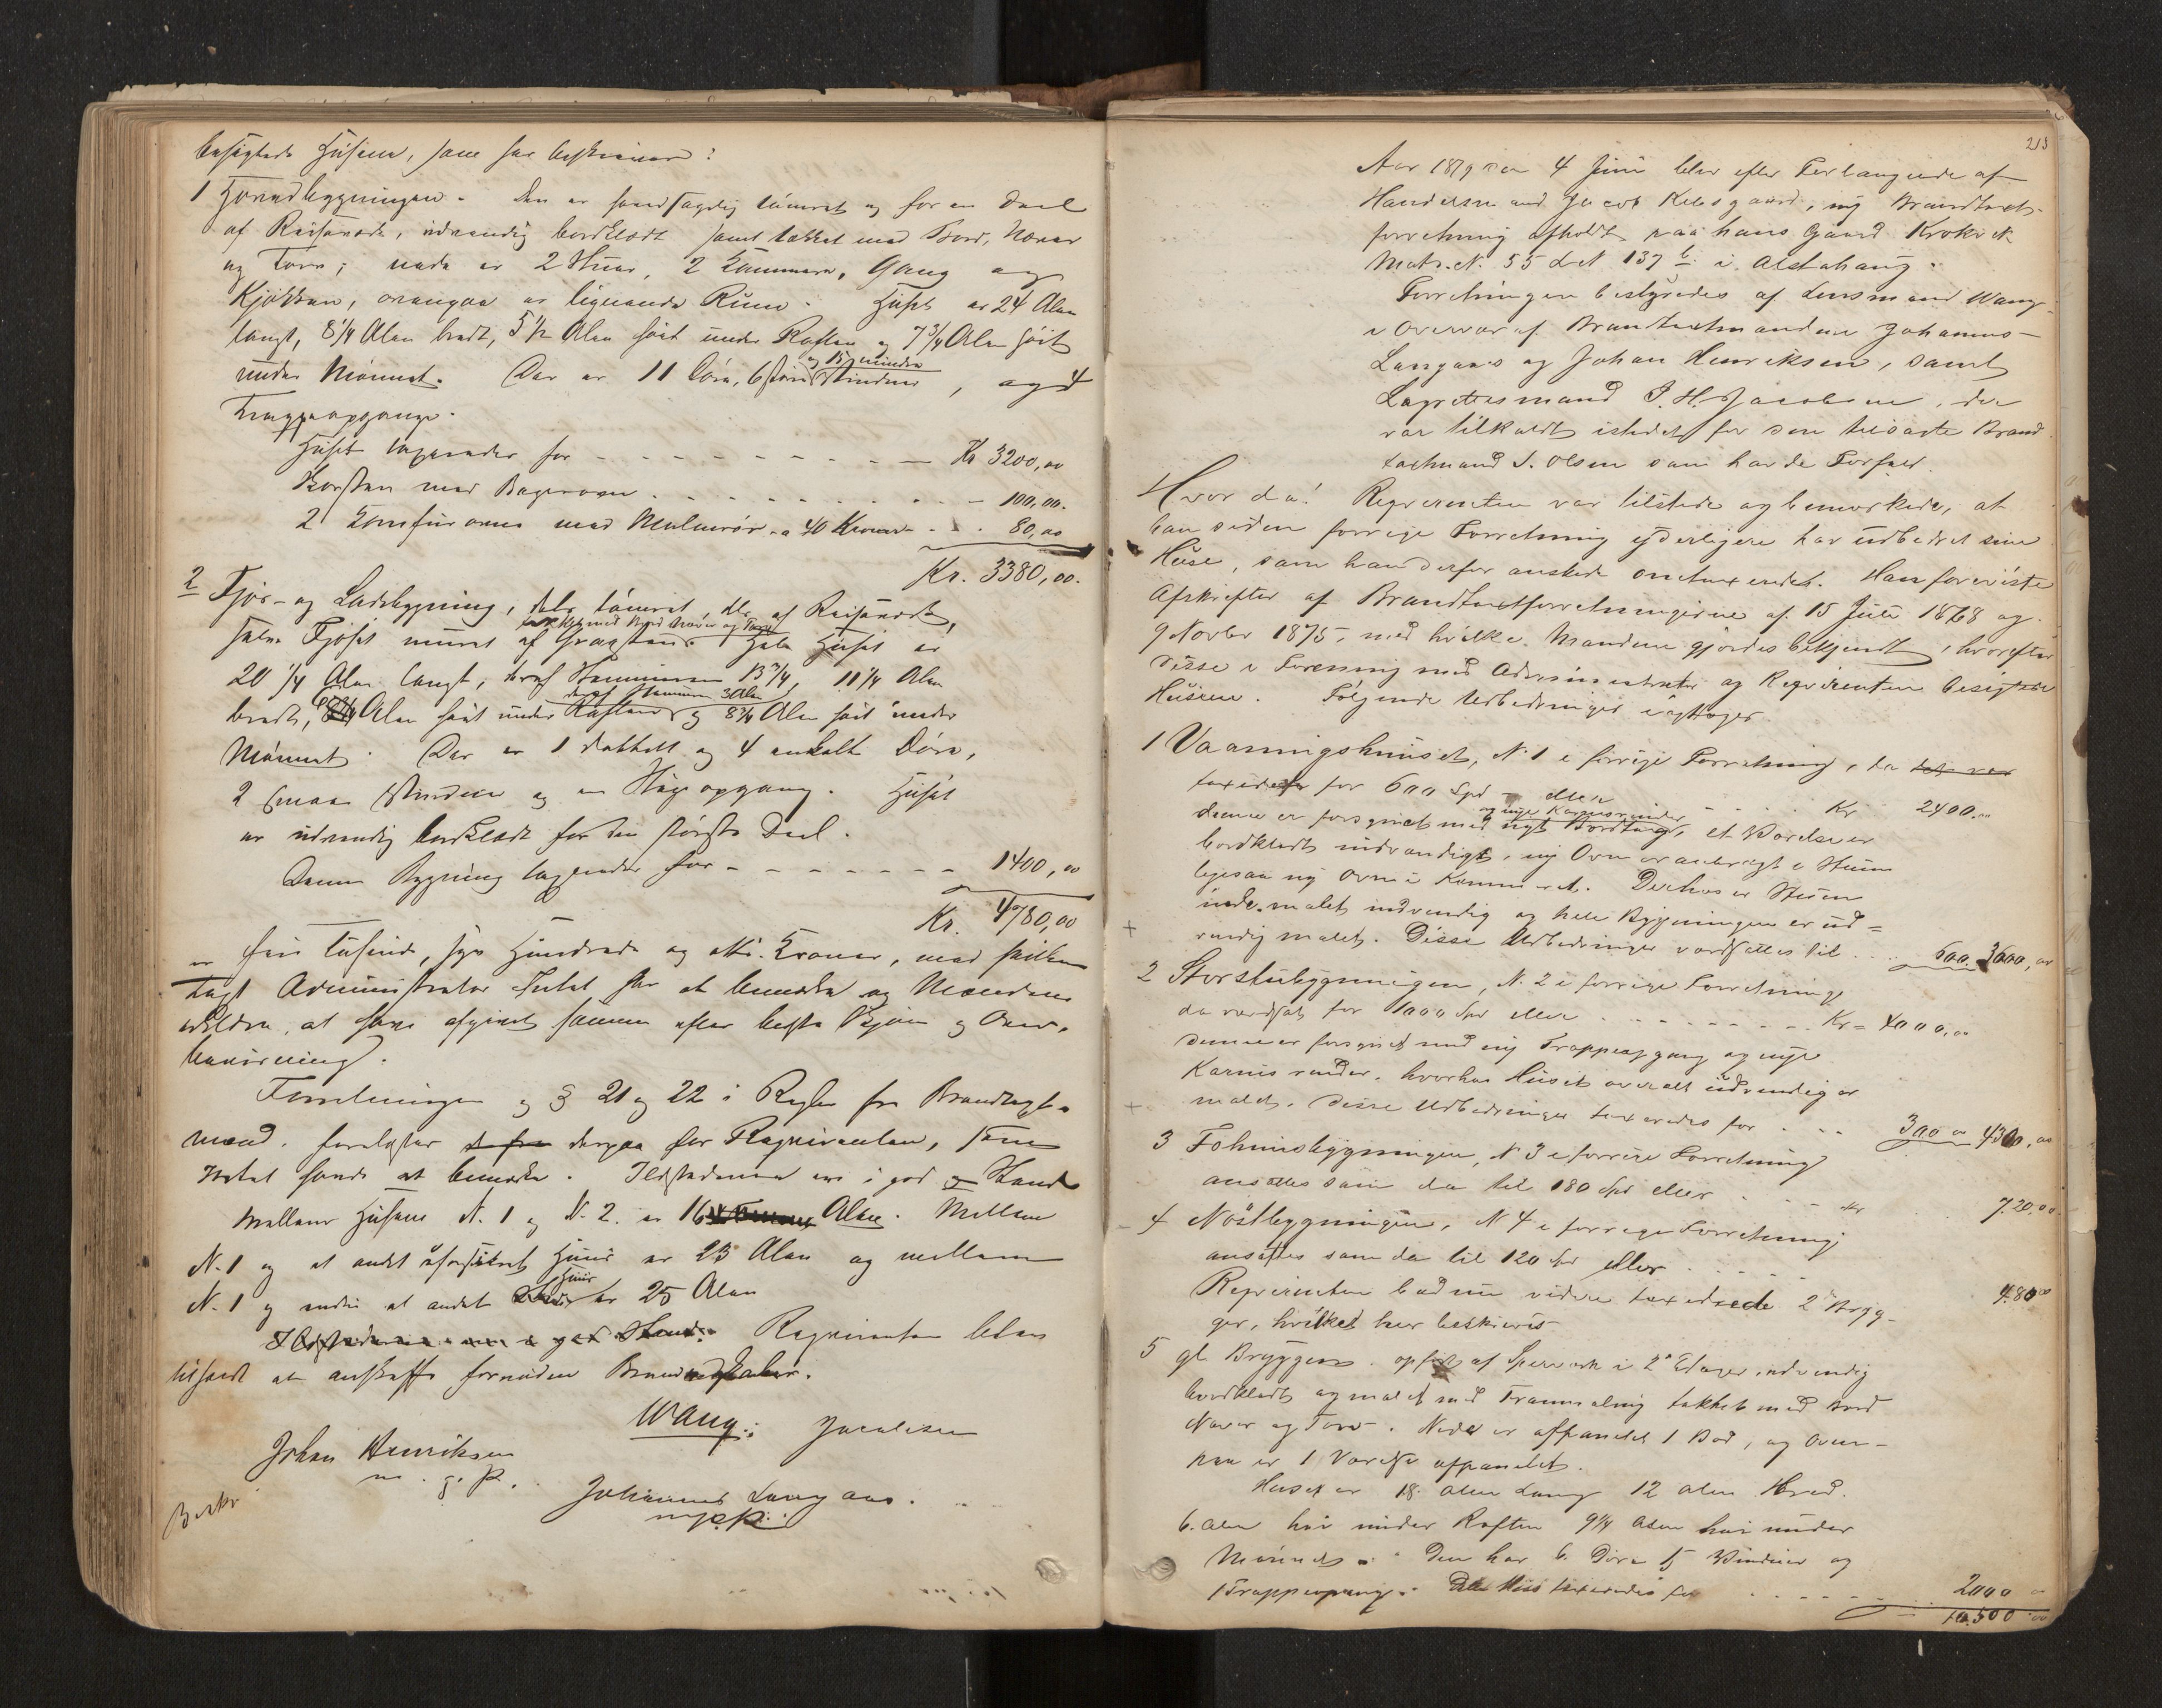 besigtede Husene, som saa beskrives:
1 Hovedbygningen. Den er hovedsagelig tømret og for en Deel
af Reisværk, udvendig bordklædt samt tækket med Bord, Næver
og Torv; nede er 2 Stuer, 2 Kammere, Gang og
Kjøkken, ovenpaa er lignende Rum. Huset er 24 Alen
langt, 8 1/4 Alen bredt, 5 1/2 Alen høit under Raften og 7 3/4 Alen høit
og 15 mindre
under Mønnet. Der er 11 Døre, 6 større Vinduer, og 4
Trappeopgange.
Huset taxeredes for Kr 3200,00
Korsten med Bagerovn 100,00.
2 Komfurovne med Malmrør a 40 Kroner 80,00
Kr. 3380,00.
2 Fjøs- og Ladebygning, dels tømret, dels af Reisværk,
tækket med Bord Næver og Torv
selve Fjøset muret af Graasten. Hele Huset er
20 1/4 Alen langt, deraf 13 3/4, 11 1/4 Alen
deraf 3 Alen
bredt, Alen høit under Raften og 8 3/4 Alen høit under
Mønnet. Der er 1 dobbelt og 4 enkelt Døre,
2 smaa Vinduer og en opgang. Huset
er udvendig bordklædt for den største Deel.
Denne Bygning taxeredes for 1400,00
Kr. 4780,00
er fire Tusinde, syv Hundrede og otti Kroner, med hvilken
Taxt Administrator Intet har at bemærke og Mændene
, at have afgivet samme efter bedste Skjøn og Over-
beviisning.
Forretningen og § 21 og 22 i Regler for Brandtaxt-
mænd forelæstes derpaa for Reqvirenten, som
Intet havde at bemærke. Ildstederne ere i god Stand
Mellem Husene N. 1 og N. 2. er 16 Alen. Mellem
N. 1 og et andet uforsikret Huus er 23 Alen og mellem
Huus
N. 1 og endnu et andet er 25 Alen
Ildstederne ere i god Stand. Reqvirenten blev
tilholdt at anskaffe fornøden Brandredskaber.
Wang: Jacobsen
Johan Henriksen
m. g. P.
Johannes Langaas.
m. p. P.
Beskr
213
Aar 1879 den 4 Juni blev efter Forlangende af
Handelsmand Jacob Kelsgaard, ny Brandtaxt-
forretning afholdt paa hans Gaard
Matr. N. 55 L. N. 137 b. i Alstahaug.
Forretningen bestyredes af Lensmand Wang
i Overvær af Brandtaxtmændene Johannes
Langaas og Johan Henriksen, samt
Lagrettesmand J. H. Jacobsen, der
var tilkaldt istedet for den beedigede Brand
taxtmand J. Olsen som havde Forfald.
Hvor da! Reqvirenten var tilstede og bemærkede, at
han siden forrige Forretning yderligere har udbedret sine
Huse, som han derfor ønskede omtaxeret. Han foreviste
Afskrifter af Brandtaxtforretningerne af 15 Juli 1868 og
9 Novbr 1875, med hvilke Mændene gjordes bekjendt, hvorefter
disse i Forening med Administrator og Reqvirenten besigtede
Husene. Følgende Udbedringer iagttoges.
1 Vaaningshuset, N. 1 i forrige Forretning, da det var
taxeredes for 600 Spd eller Kr 2400.00
og nye Karnisrender
denne er forsynet med nyt Bordtag, et Værelse er
bordklædt indvendigt, ny Ovn er anbragt i Stuen
ligesaa ny Ovn i Kammeret. Derhos er Stuen
nede malet indvendig og hele Bygningen er ud-
vendig malet. Disse Udbedringer værdsattes til 600. 3000,00
2 Storstubygningen, N. 2 i forrige Forretning
da værdsat for 1000 Spd eller Kr 4000,00
denne er forsynet med ny Trappeopgang og nye
Karnisrender, hvorhos Huset overalt udvendig er
malet. Disse Udbedringer taxeredes for 300 00 4300,00
3 bygningen, N 3 i forrige Forretning
ansattes som da til 180 Spd eller Kr 720.00
4 Nöstbygningen, N 4 i forrige Forretning
ansattes som da til 120 Spd eller 480 00
Reqvirenten bad nu videre taxerede 2 Bryg-
ger, hvilket her beskrives
5 gl. Bryggen opført af Sperværk i 2 Etager, udvendig
bordklædt og malet med Tranmaling tækket med Bord
Næver og Torv. Nede er afpanelet 1 Bod, og oven-
paa er 1 Værelse afpanelet.
Huset er 18 Alen Lang 12 Alen Bred.
6. Alen høi under Raften 9 1/4 Alen høi under
Mønnet. Den har 6 Døre 15 Vinduer og
1 Trappeopgang. Dette Huus taxeredes for 2000
10,500 00